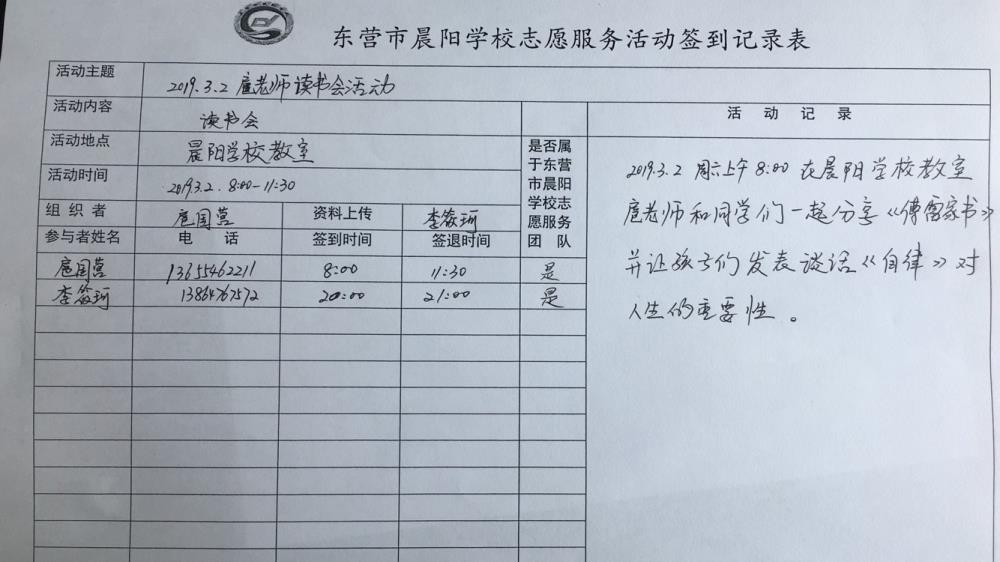 东营市晨阳学校志愿服务活动签到记录表
活动主题 2019.3.2 扈老师读书会活动
活动内容 读书会
活动地点 晨阳学校教室
活动时间 2019.3.2. 8:00-11:30
组织者 扈国营 资料上传 李筱珂
参与者姓名 电话 签到时间 签退时间
是否属
于东营
市晨阳
学校志
愿服务
团队
扈国营 13655462211 8:00 11:30 是
李筱珂 13864767572 20:00 21:00 是
活动记录
2019.3.2 周六上午8:00在晨阳学校教室
扈老师和同学们一起分享《傅雷家书》
并让孩子们发表谈话《自律》对
人生的重要性。